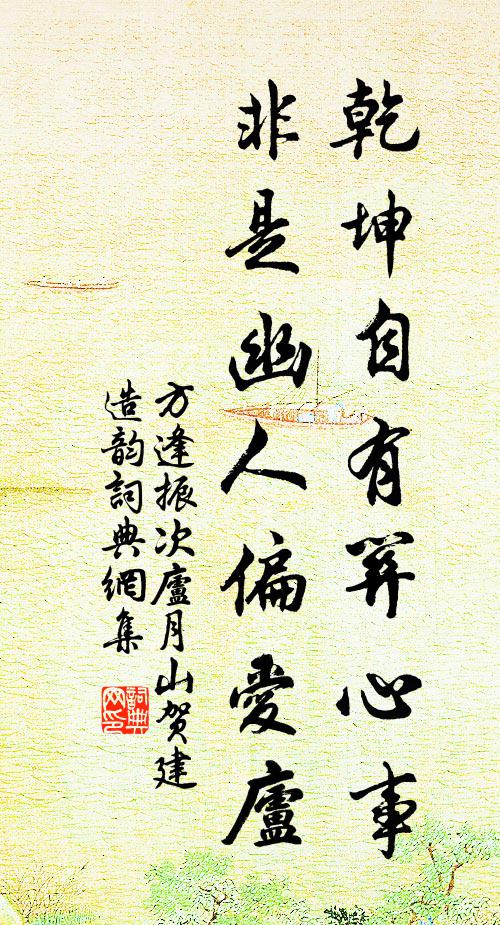 乾坤自有關心事
非是幽人偏愛廬
方逢振次廬月山賀建
造韵詞典網集
詞典
网印